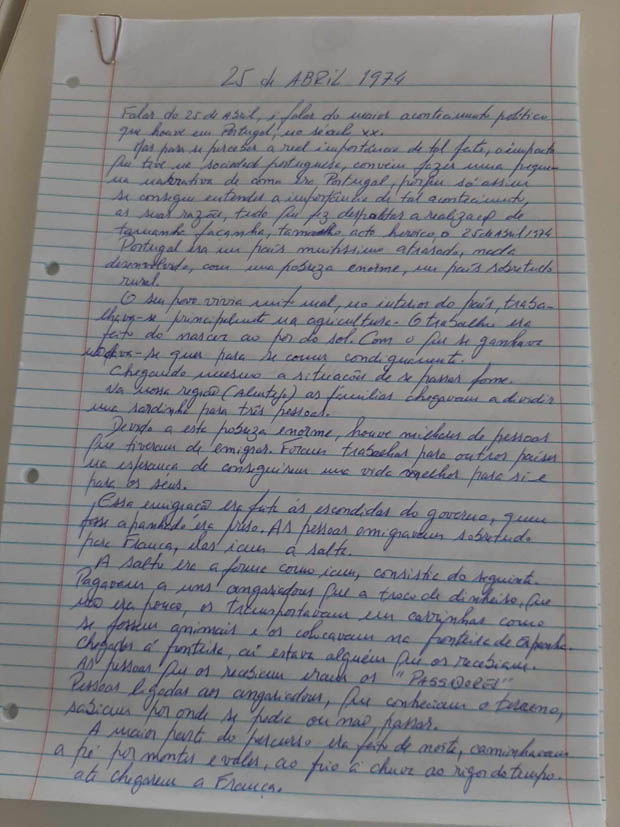 25 de ABRIL 1974
Falar do 25 de Abril, é falar do maior acontecimento político
que houve em Portugal, no século XX.
Mas para se perceber a real importância de tal feito, o impacto
que teve na sociedade portuguesa, convém fazer uma peque-
na narrativa de como era Portugal, porque só assim
se consegue entender a importância de tal acontecimento,
as suas razões, tudo que fez despoletar a realização de
tamanha façanha, tamanho acto heróico, o 25 de Abril 1974
Portugal era um país muitíssimo atrasado, nada
desenvolvido, com uma pobreza enorme, um país sobretudo
rural.
O seu povo vivia muito mal, no interior do país, traba-
lhava-se principalmente na agricultura. O trabalho era
feito do nascer ao por do sol. Com o que se ganhava
não dava-se quer para se comer condignamente.
Chegando mesmo a situação de se passar fome.
Na nossa região (Alentejo) as famílias chegavam a dividir
uma sardinha para três pessoas.
Devido a esta pobreza enorme, houve milhares de pessoas
que tiveram de emigrar. Foram trabalhar para outros países
na esperança de conseguirem uma vida melhor para si e
para os seus.
Essa emigração era feita às escondidas do governo, quem
fosse apanhado era preso. As pessoas emigravam sobretudo
para França, elas iam a salto.
A salto era a forma como iam, consistia do seguinte.
Pagavam a uns angariadores que a troco de dinheiro, que
não era pouco, os transportavam em carrinhas como
se fossem animais e os colocavam na fronteira de Espanha.
Chegados à fronteira, aí estava alguém que os recebiam.
As pessoas que os recebiam eram os "PASSADORES"
Pessoas ligadas aos angariadores, que conheciam o terreno,
sabiam por onde se podia ou não passar.
A maior parte do percurso era feito de noite, caminhavam
a pé por montes e vales, ao frio à chuva ao rigor do tempo.
até chegarem a França.